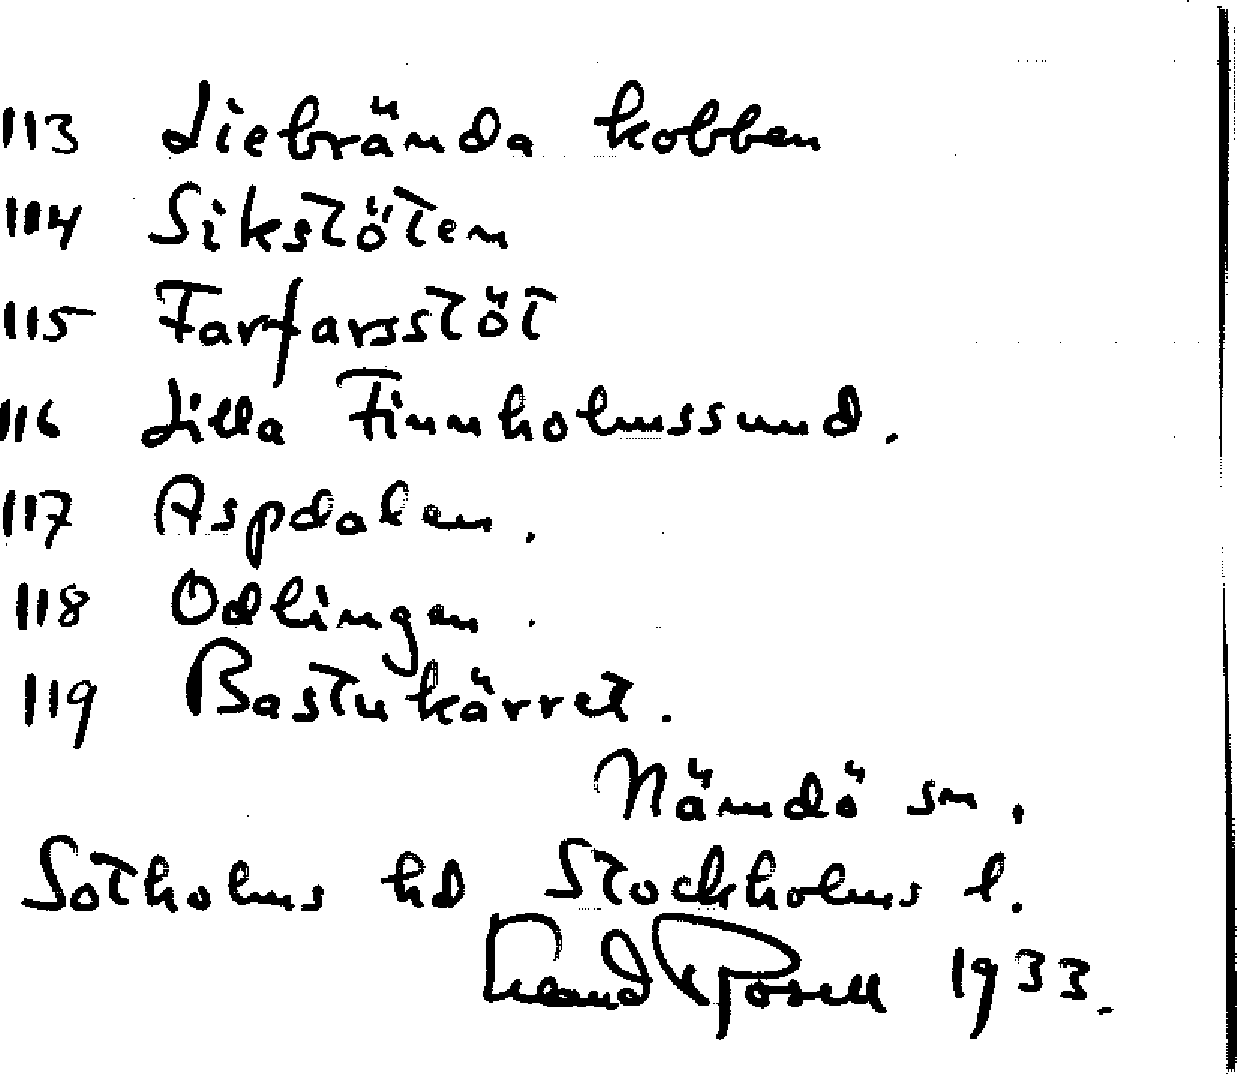 113 Liebrända kobben
114 Sikstöten
115 Farfarsstöt
116 Lilla Finnholmssund.
117 Aspdalen.
118 Odlingen.
119 Bastukärret.
Nämdö sn.
Sotholms hd Stockholms l.
1933.